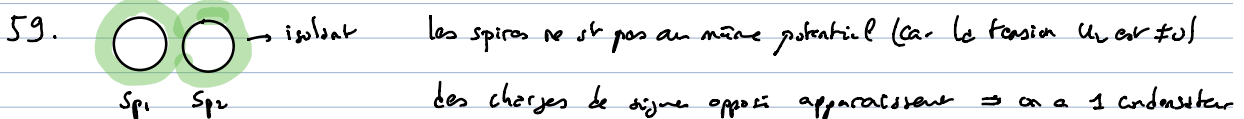 59. → isolant les spires ne st pas au même potentiel (car la tension u_L est ≠ 0)
Sp1 Sp2 des charges de signe opposé apparaissent ⇒ on a 1 condensateur